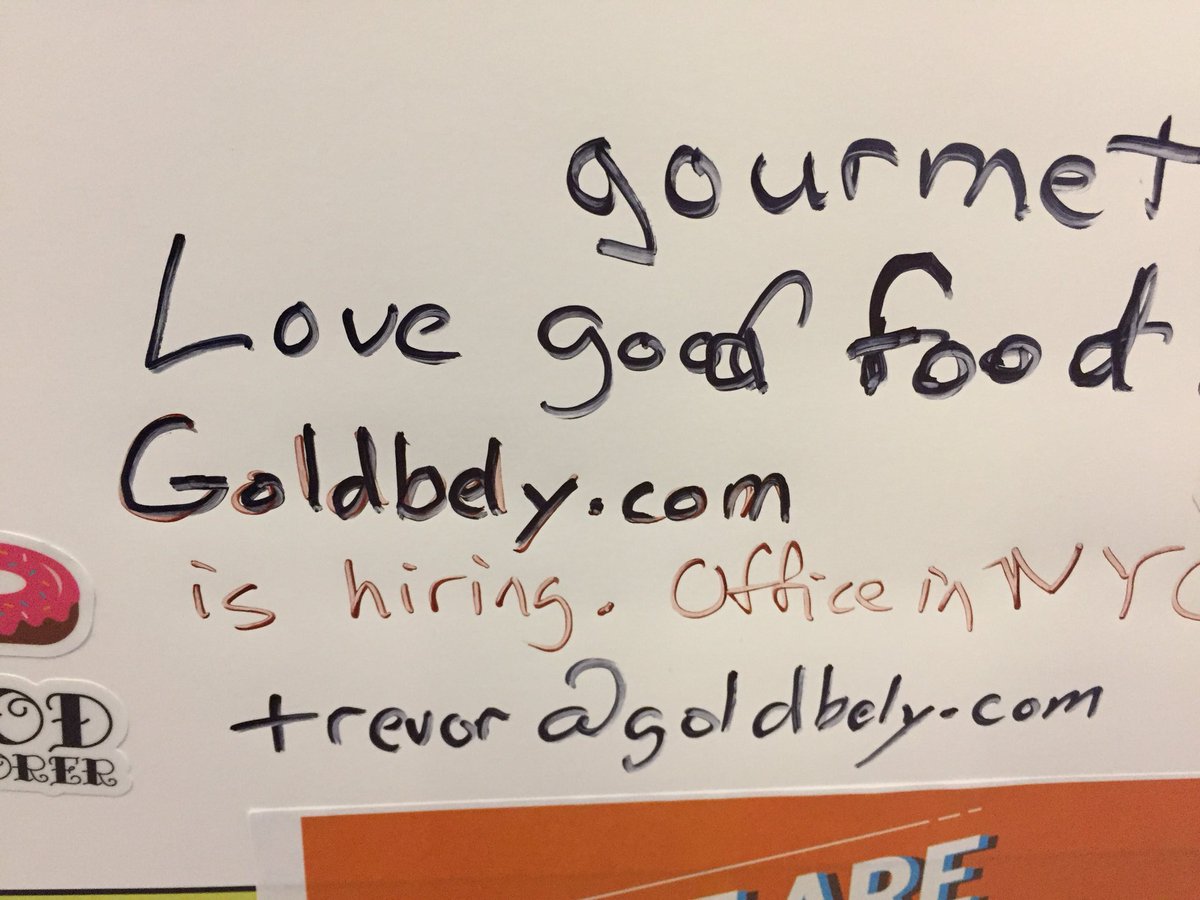 gourmet
Love good food
Goldbely.com
is hiring. Office in NYC
trevor@goldbely.com